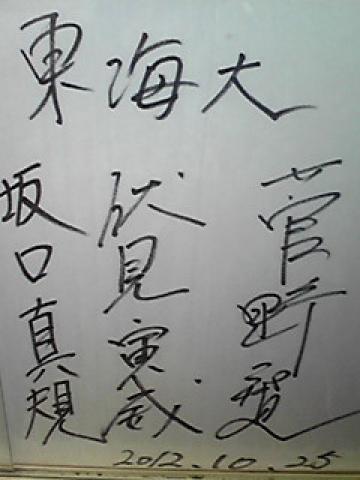 東海大
菅野智之
伏見寅威
坂口真規
2012.10.25